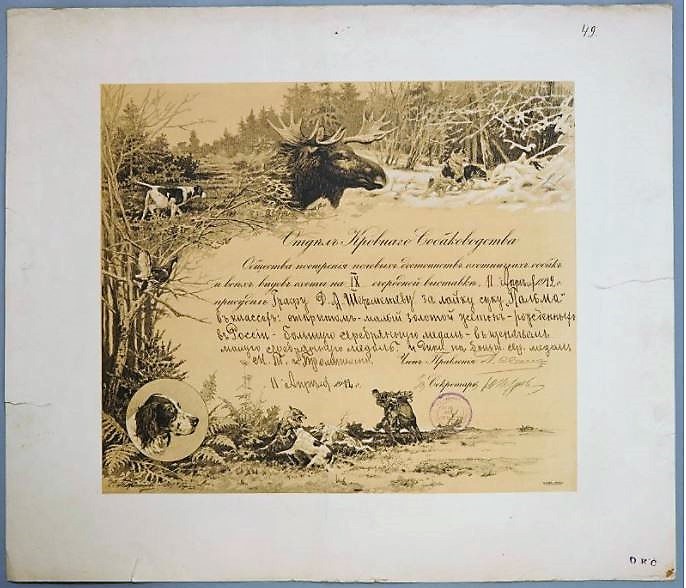 49
Отдѣлъ Кровнаго Собаководства
Общества поощренія полевыхъ достоинствъ охотничьихъ собакъ
и всѣхъ видовъ охоты на IX очередной выставкѣ, 11 апрѣля 1912 г.
присудилъ Графу Д. А. Шереметеву за лайку суку "Пальма"
въ классахъ: открытомъ - малый золотой жетонъ - рожденныхъ
въ Россіи - большую серебряную медаль - въ щенячьемъ
малую серебряную медаль
Членъ Правленія
11 Апрѣля 1912 г.
Секретарь
D K C